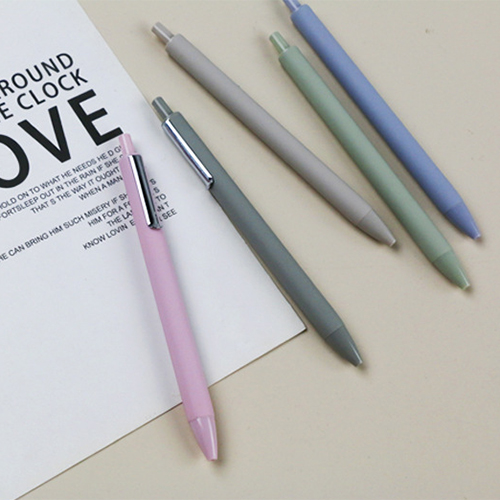 ROUND
E CLOCK
OVE
HOLD ON TO WHAT HE NEEDS HE D G
FORTSLEEP OUT IN THE RAIN IF SHE
THAT S THE WAY IT OUGHT
WHEN A MAN
HE CAN BRING HIM SUCH MISERY IF SHE
HIM FOR A F
THE LA AN T
KNOW LOVIN E SEE